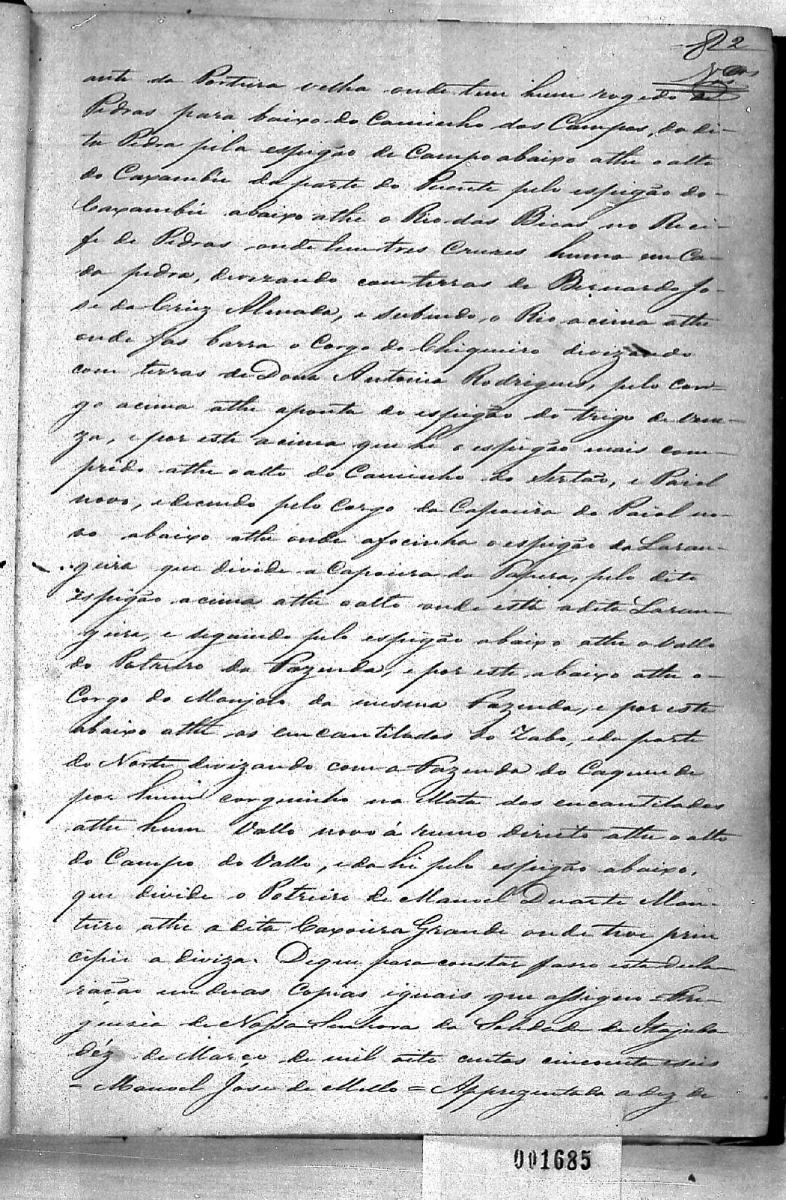 82
ante da Porteira velha onde tem hum rogedo de
Pedras para baixo do Caminho dos Campos, da di-
ta Pedra pela espigão de Campo abaixo athe o alto
do Caxambú da parte do Puente pelo espigão do
Caxambú abaixo athe o Rio das Bicas no Reci-
fe de Pedras onde tem tres Cruzes huma em Ca-
da pedra, divizando com terras de Bernardo Jo-
se da Cruz Almada, e subindo o Rio acima athe
onde fas barra o Corgo do Chiqueiro divizando
com terras de Dona Antonia Rodrigues, pelo cor-
go acima athe aponta do espigão do trigo de
za, e por este acima que he o espigão mais com-
prido athe o alto do Caminho do Sertão, e Paiol
novo, edecendo pelo Corgo da Capoeira do Paiol no-
vo abaixo athe onde afocinha o espigão da Laran-
geira que divide a Capoeira da Tapera, pelo dito
Espigão acima athe o alto onde está adita Laran-
geira, e seguindo pelo espigão abaixo athe o Vallo
do Potreiro da Fazenda, e por este abaixo athe o
Corgo do Monjolo da mesma Fazenda, e por este
abaixo athe os encantilados do Zabo, eda parte
do Norte divizando com a Fazenda do Caquende
por hum corguinho na Mata dos encantilados
athe hum Vallo novo á rumo direito athe o alto
do Campo do Vallo, e dahi pelo espigão abaixo,
que divide o Potreiro de Manoel Duarte Mon-
teiro athe adita Caxoeira Grande onde teve prin
cipio a diviza. Deque para constar passo esta decla
ração em duas Copias iguais que assigno Fre-
guesia de Nossa Senhora da Soledade de Itajuba
déz de Março de mil oito centos cincoenta eseis
= Manoel Jose de Mello = Apprezentada a dez de
001685